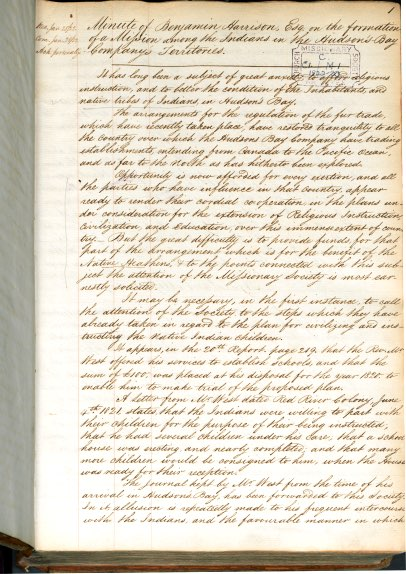 1
Minute of Benjamin Harrison, Esq. on the formation
of a Mission among the Indians in the Hudson's Bay
Company's Territories.
MISSIONARY
It has long been a subject of great anxiety to religious
instruction, and to better the condition of the Inhabitants and
native tribes of Indians in Hudson's Bay.
The arrangements for the regulation of the fur trade,
which have recently taken place, have restored tranquility to all
the Country over which the Hudson's Bay Company have trading
establishments, extending from Canada to the Pacific Ocean,
and as far to the north as has hitherto been explored.
Opportunity is now afforded for every exertion, and all
the parties who have influence in that Country, appear
ready to render their cordial co-operation in the plans un-
der consideration for the extension of Religious Instruction,
Civilization and Education, over this immense extent of coun-
try. But the great difficulty is to provide funds for that
part of the arrangement which is for the benefit of the
Native Heathens, & to the points connected with this sub-
ject the attention of the Missionary Society is most ear-
nestly solicited.
It may be necessary, in the first instance, to call
the attention of the Society to the steps which they have
already taken in regard to the plan for civilizing and ins-
tructing the Native Indian children.
It appears, in the 20th Report, page 219, that the Rev. Mr
West offered his services to establish Schools, and that the
sum of £100. was placed at his disposal for the year 1820 to
enable him to make trial of the proposed plan.
A letter from Mr West dated Red River Colony, June
4th 1821 states that the Indians were willing to part with
their children for the purpose of their being instructed,
that he had several children under his care, that a school
house was erecting and nearly completed, and that many
more children would be consigned to him, when the House
was ready for their reception.
The journal kept by Mr West from the time of his
arrival in Hudson's Bay, has been forwarded to this Society.
In it allusion is repeatedly made to his frequent intercourse
with the Indians, and the favourable manner in which